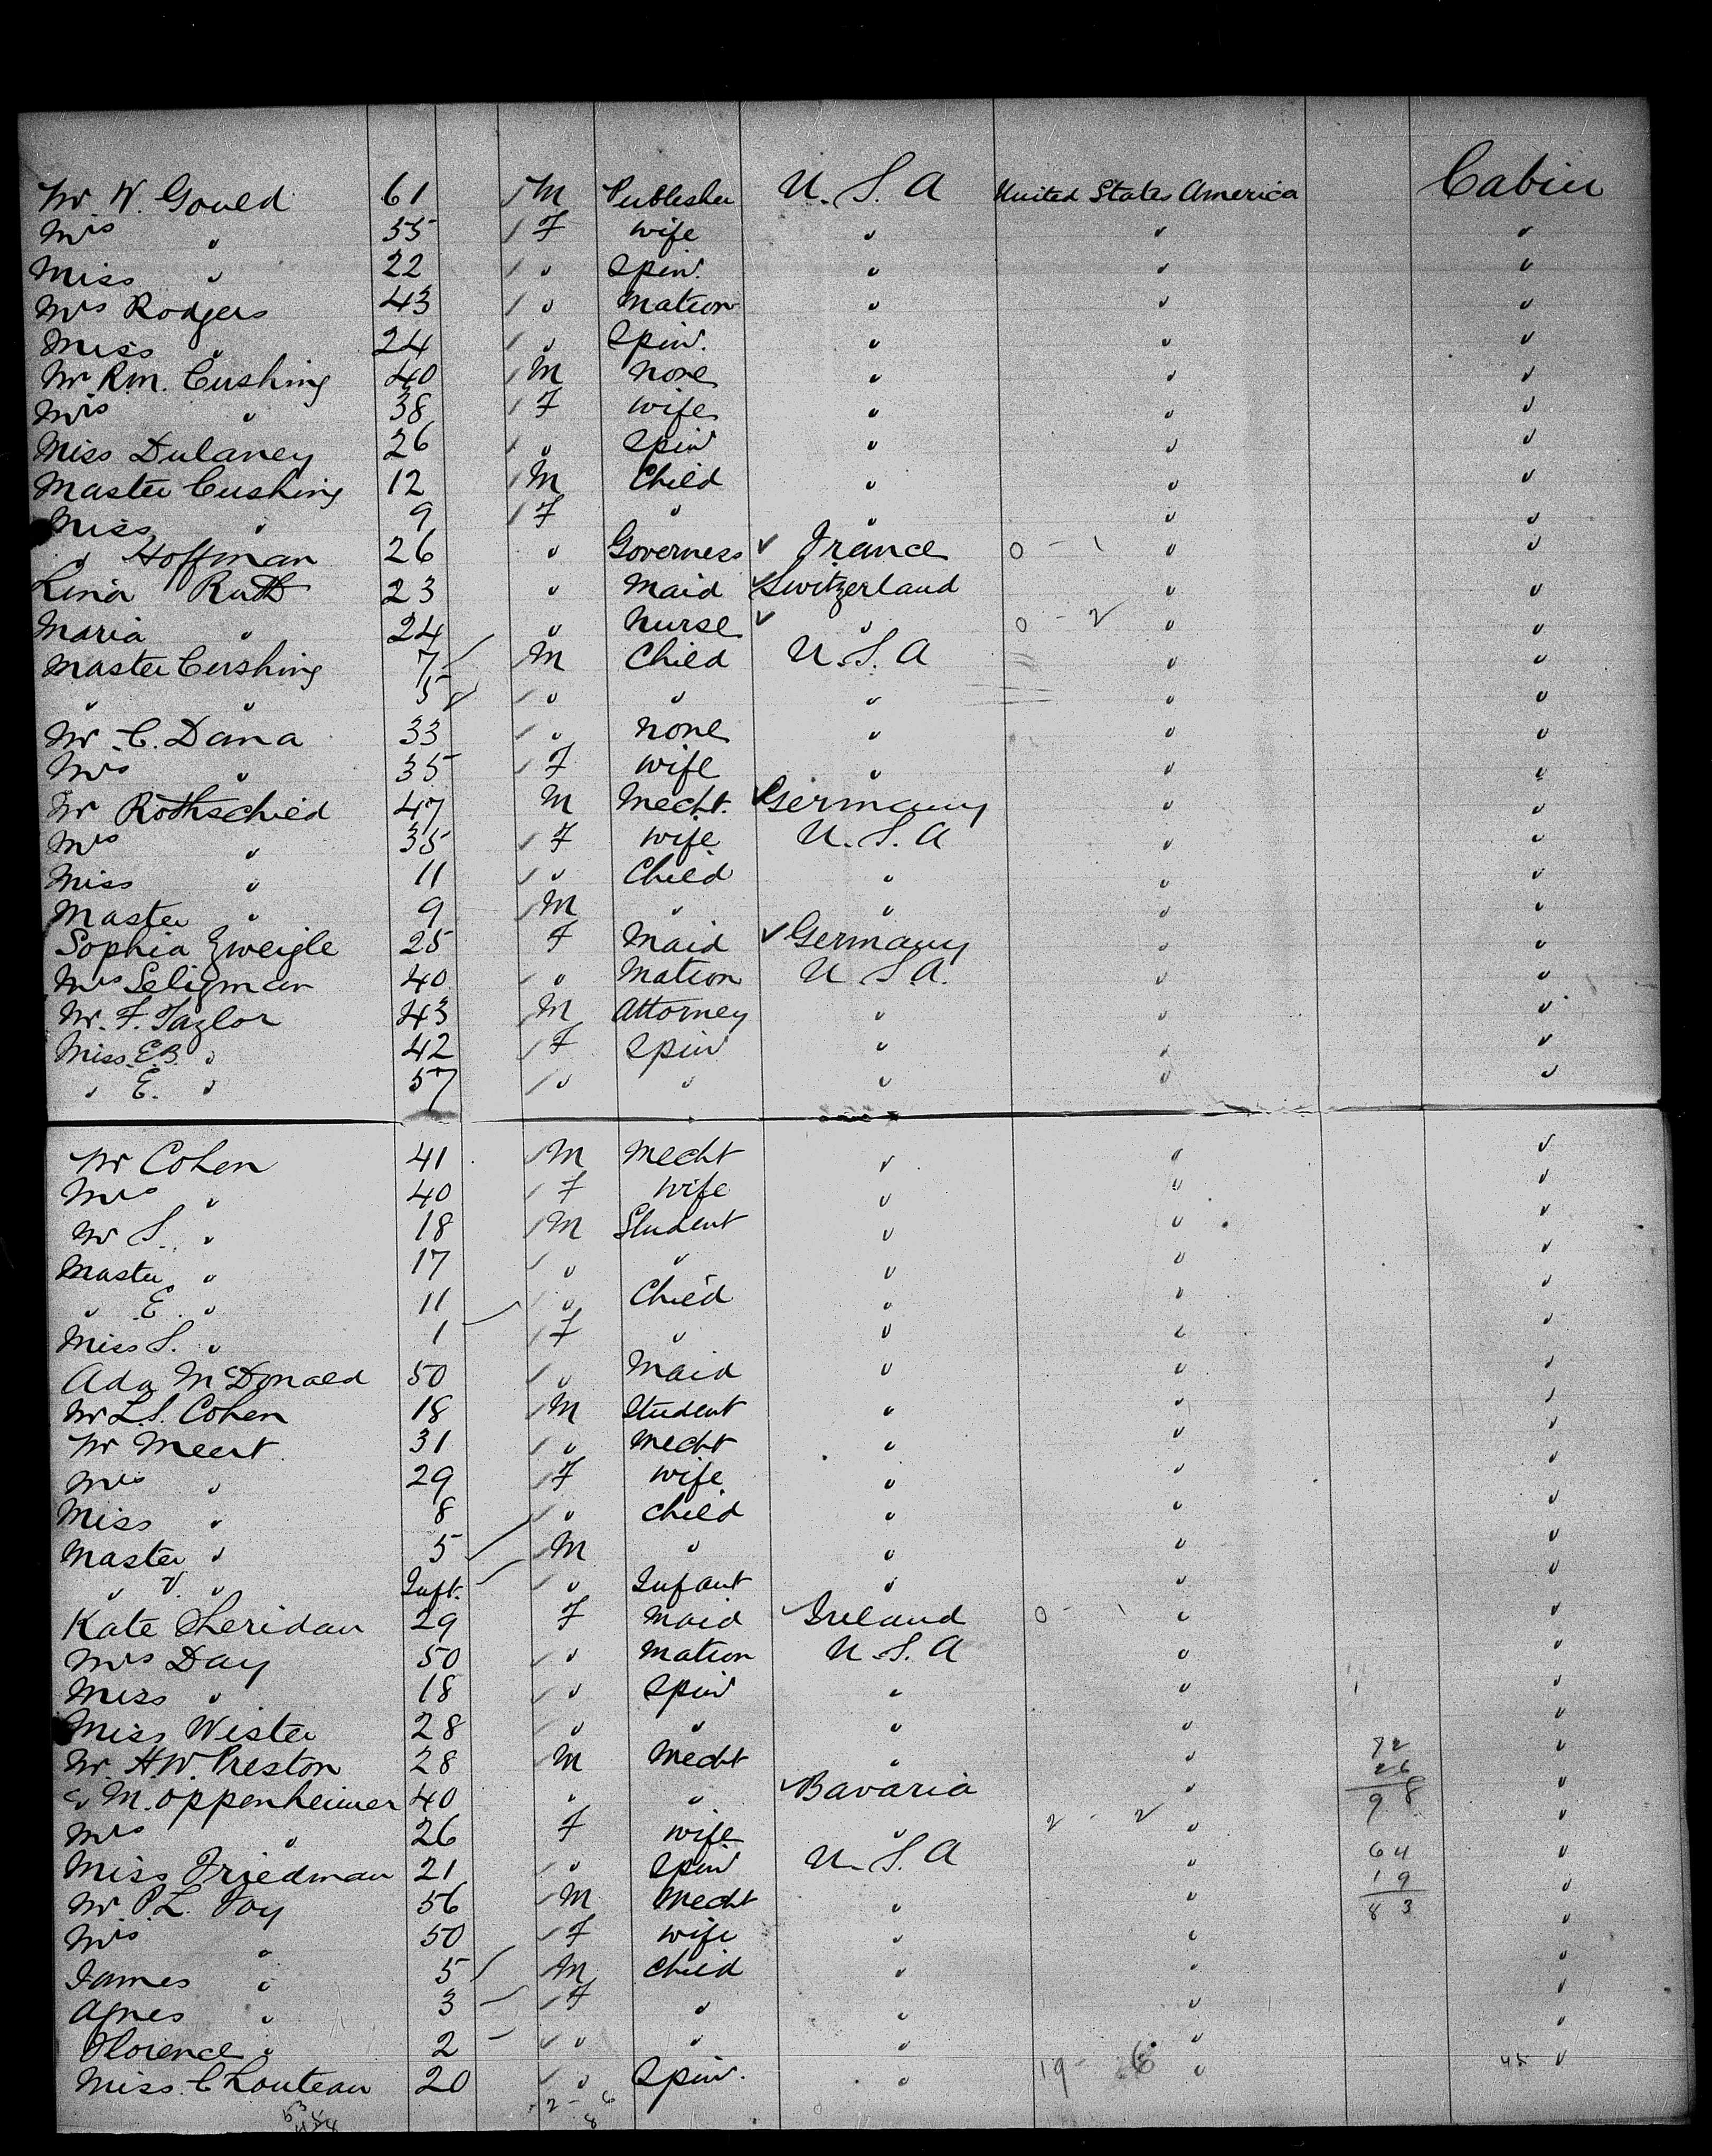 Mr W. Gould 61 M Publisher U.S.A United States America Cabin
Mrs " 55 F Wife " " "
Miss " 22 " Spin. " " "
Mrs Rodgers 43 " Matron " " "
Miss " 24 " Spin. " " "
Mr Rm. Cushing 40 M None " " "
Mrs " 38 F Wife " " "
Miss Dulaney 26 " Spin " " "
Master Cushing 12 M Child " " "
Miss " 9 F " " " "
" Hoffman 26 " Governess France 0 - 1 " "
Lina Ruth 23 " Maid Switzerland " "
Maria " 24 " Nurse " 0 - 2 " "
Master Cushing 7 M Child U.S.A " "
" " 5 " " " " "
Mr C. Dana 33 " None " " "
Mrs " 35 F Wife " " "
Mr Rothschild 47 M Mecht. Germany " "
Mrs " 35 F Wife U.S.A " "
Miss " 11 " Child " " "
Master " 9 M " " " "
Sophia Zweigle 25 F Maid Germany " "
Mrs Seligman 40 " Matron U.S.A. " "
Mr. F. Taylor 43 M Attorney " " "
Miss E.B. " 42 F Spin " " "
" E. " 57 " " " " "
Mr Cohen 41 M Mecht " " "
Mrs " 40 F Wife " " "
Mr S. " 18 M Student " " "
Master " 17 " " " " "
" E. " 11 " Child " " "
Miss S. " 1 F " " " "
Ada McDonald 50 " Maid " " "
Mr L.S. Cohen 18 M Student " " "
Mr Meert 31 " Mecht " " "
Mrs " 29 F Wife " " "
Miss " 8 " Child " " "
Master " 5 M " " " "
" V. " Inft. " Infant " " "
Kate Sheridan 29 F Maid Ireland 0 - 1 " "
Mrs Day 50 " Matron U.S.A " "
Miss " 18 " Spin " " "
Miss Wister 28 " " " " "
Mr. H.W. Preston 28 M Mecht " " 72 "
" M. Oppenheimer 40 " " Bavaria " 26 98 "
Mrs " 26 F Wife " 2 - 2 " "
Miss Friedman 21 " Spin U.S.A " 64 "
Mr. P.L. Foy 56 M Mecht " " 19 83 "
Mrs " 50 F Wife " " "
James " 5 M Child " " "
Agnes " 3 F " " " "
Florence " 2 " " " " "
Miss Chouteau 20 " Spin. " 19 - 26 " "